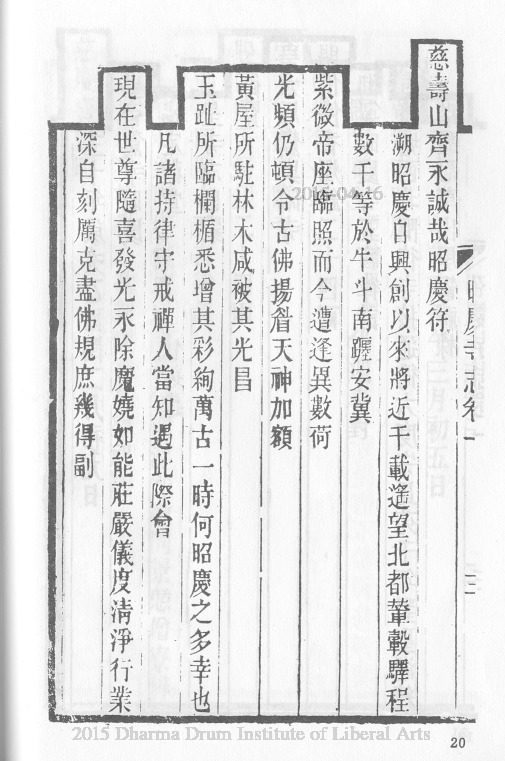 慈壽山齊永誠哉昭慶符
溯昭慶自興創以來將近千載遙望北都輦轂驛程
數千等於牛斗南躔安冀
紫微帝座臨照而今遭逢異數荷
光頻仍頓令古佛揚眉天神加額
黃屋所駐林木咸被其光昌
玉趾所臨欄楯悉增其彩絢萬古一時何昭慶之多幸也
凡諸持律守戒禪人當知遇此際會
現在世尊隨喜發光永除魔嬈如能莊嚴儀度清淨行業
深自刻厲克盡佛規庶幾得副
昭慶寺志卷一
20
2015 Dharma Drum Institute of Liberal Arts